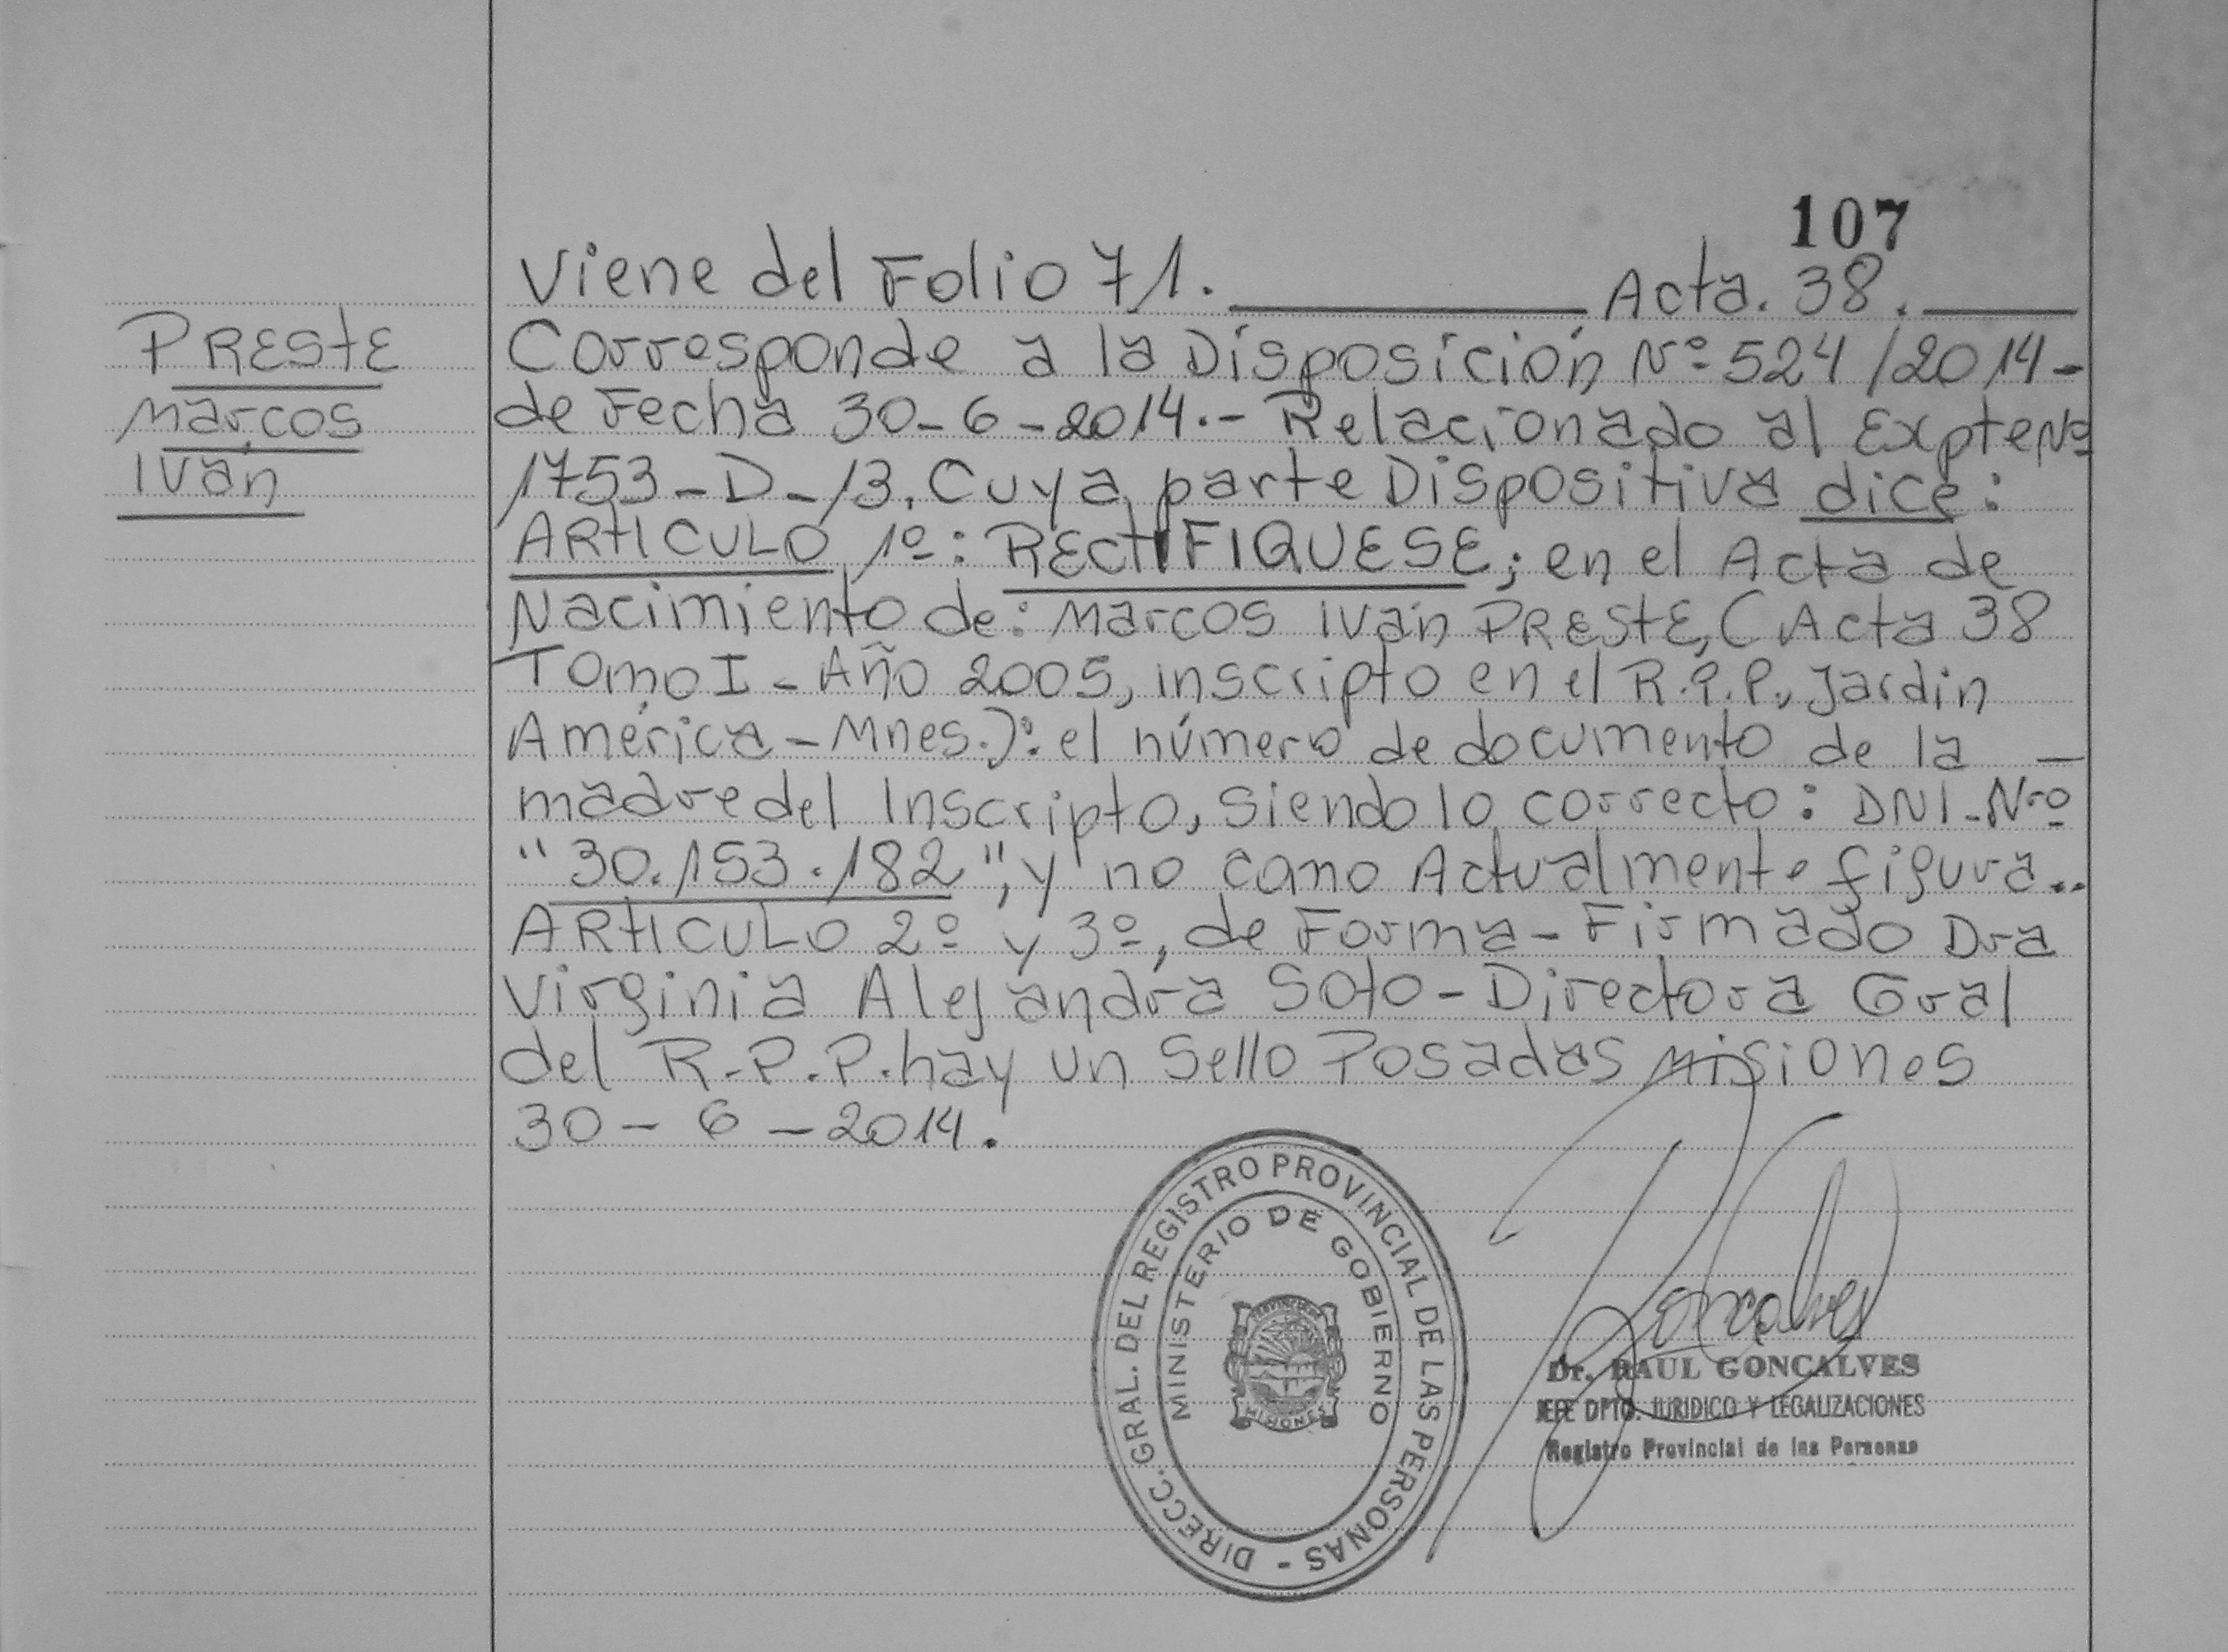 107
Viene del Folio 71. Acta. 38.
PRESTE
Marcos
Iván
Corresponde a la Disposición Nº 524/2014-
de Fecha 30-6-2014.- Relacionado al Expte Nº
1753-D-13. Cuya parte Dispositiva dice:
ARTICULO 1º: RECTIFIQUESE; en el Acta de
Nacimiento de: Marcos Iván PRESTE, (Acta 38
Tomo I - Año 2005, inscripto en el R.P.P., Jardin
América - Mnes.): el número de documento de la —
madre del Inscripto, Siendo lo correcto: DNI-Nro
"30.153.182", y no como Actualmente figura..
ARTICULO 2º y 3º, de Forma - Firmado Dra
Virginia Alejandra Soto - Directora Gral
del R.P.P. hay un Sello Posadas Misiones
30-6-2014.
DIRECC. GRAL. DEL REGISTRO PROVINCIAL DE LAS PERSONAS -
MINISTERIO DE GOBIERNO
MISIONES
Goncalves
Dr. RAUL GONCALVES
JEFE DPTO. JURIDICO Y LEGALIZACIONES
Registro Provincial de las Personas